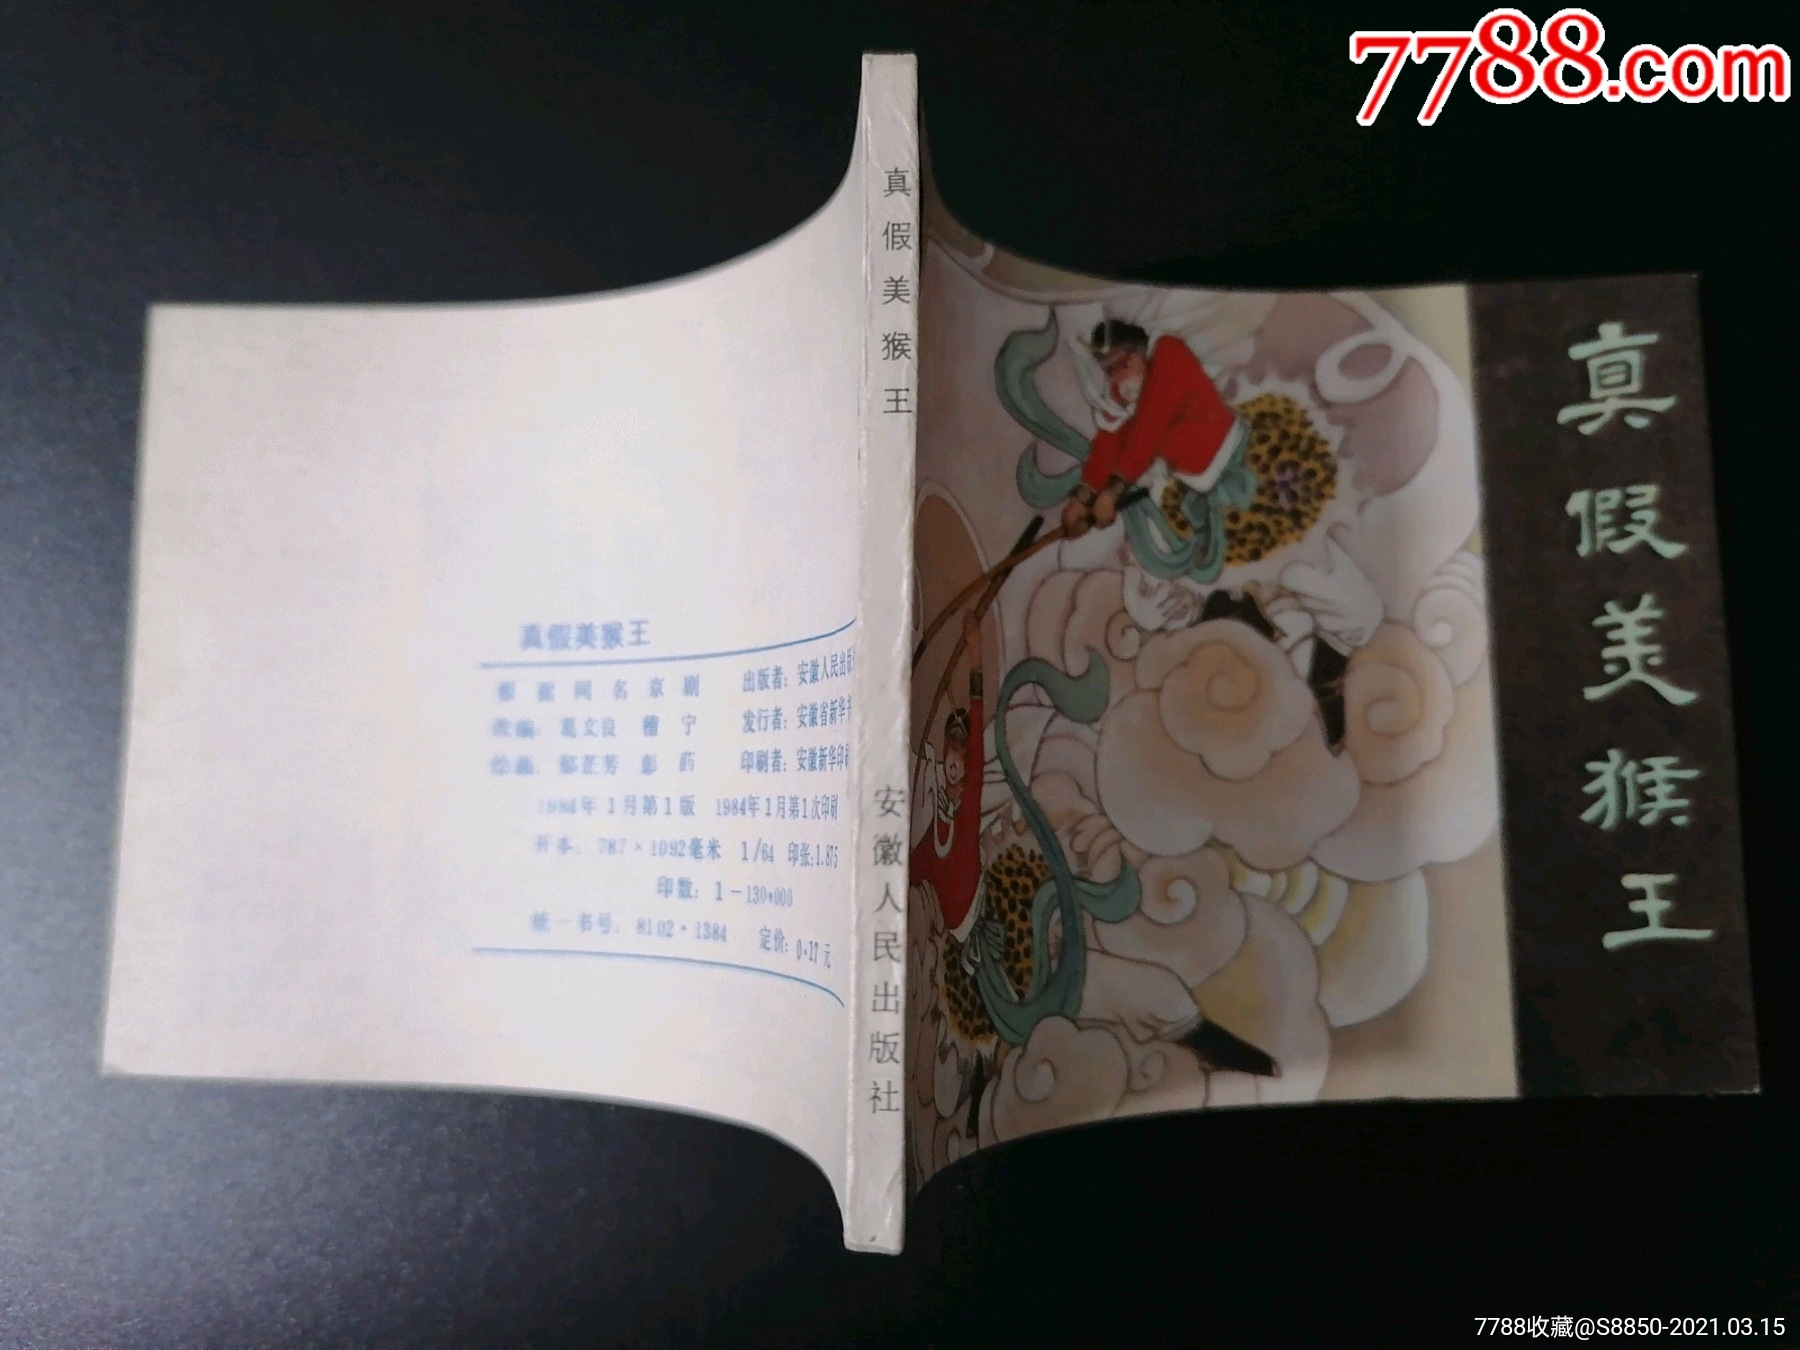 7788.com
真假美猴王
安徽人民出版社
真假美猴王
真假美猴王
根据同名京剧 出版者：安徽人民出版
改编：葛文良 稽 宁 发行者：安徽省新华书
绘画： 彭 印刷者：安徽新华印刷
1984年1月第1版 1984年1月第1次印刷
开本：787×1092毫米 1/64 印张：1.875
印数：1—130,000
统一书号：8102·1384 定价：0.17元
7788收藏@S8850-2021.03.15